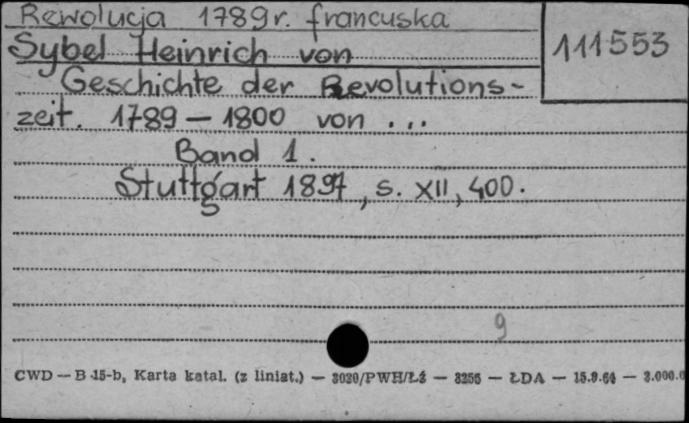 Rewolucja 1789 r. francuska
111553
Sybel Heinrich von
Geschichte der Revolutions-
zeit. 1789 — 1800 von ...
Band 1.
Stuttgart 1897, s. XII, 400.
9
CWD — B-15-b, Karta katal. (z liniat.) — 3020/PWH/Łż — 3256 — ŁDA — 15.9.64 — 3.000.0